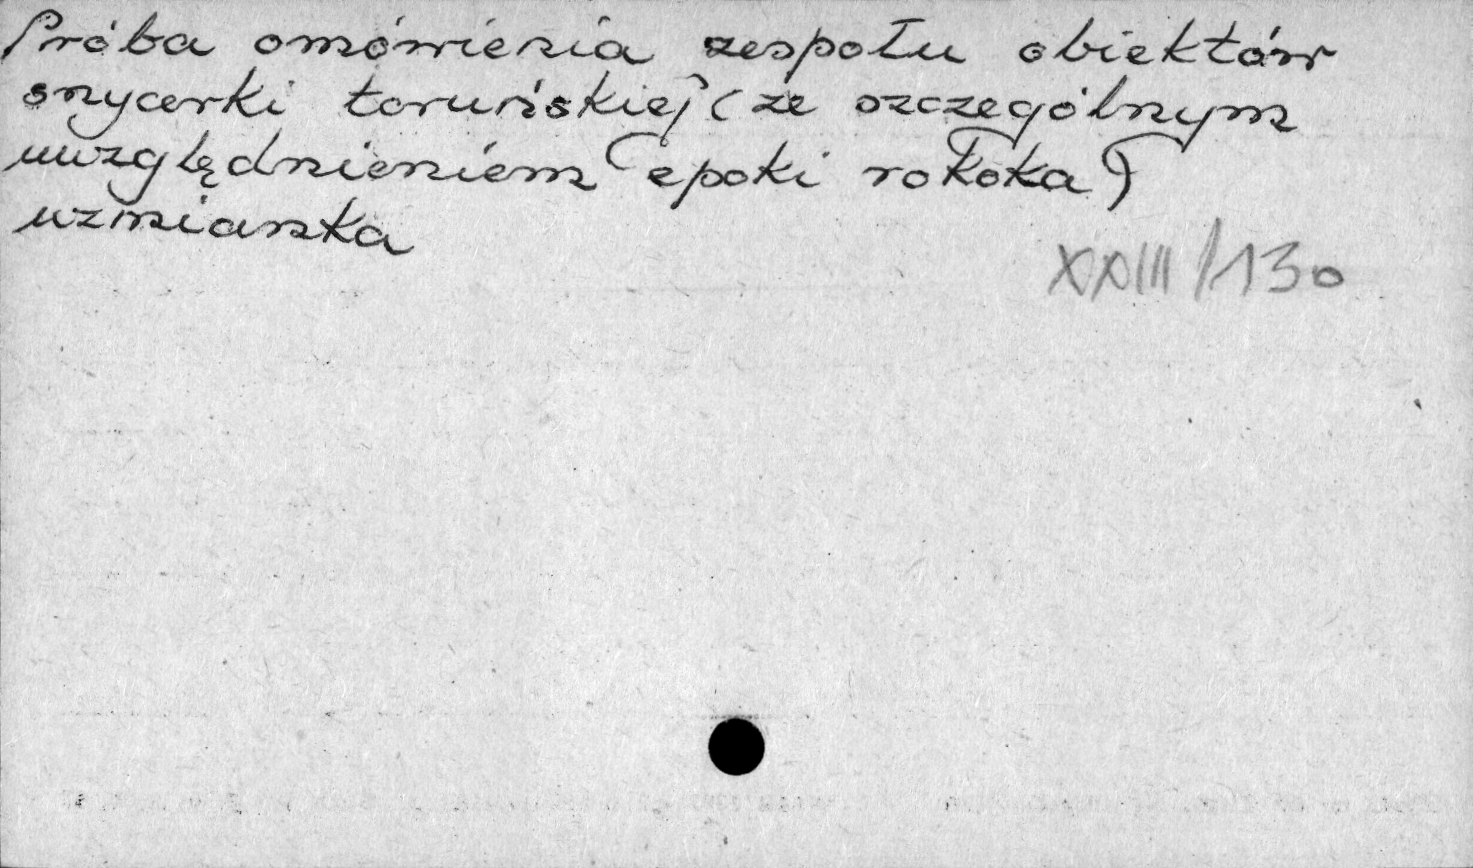 Próba omówienia zespołu obiektów
snycerki toruńskiej (ze szczególnym
uwzględnieniem epoki rokoka)
wzmianka
XXIII/130